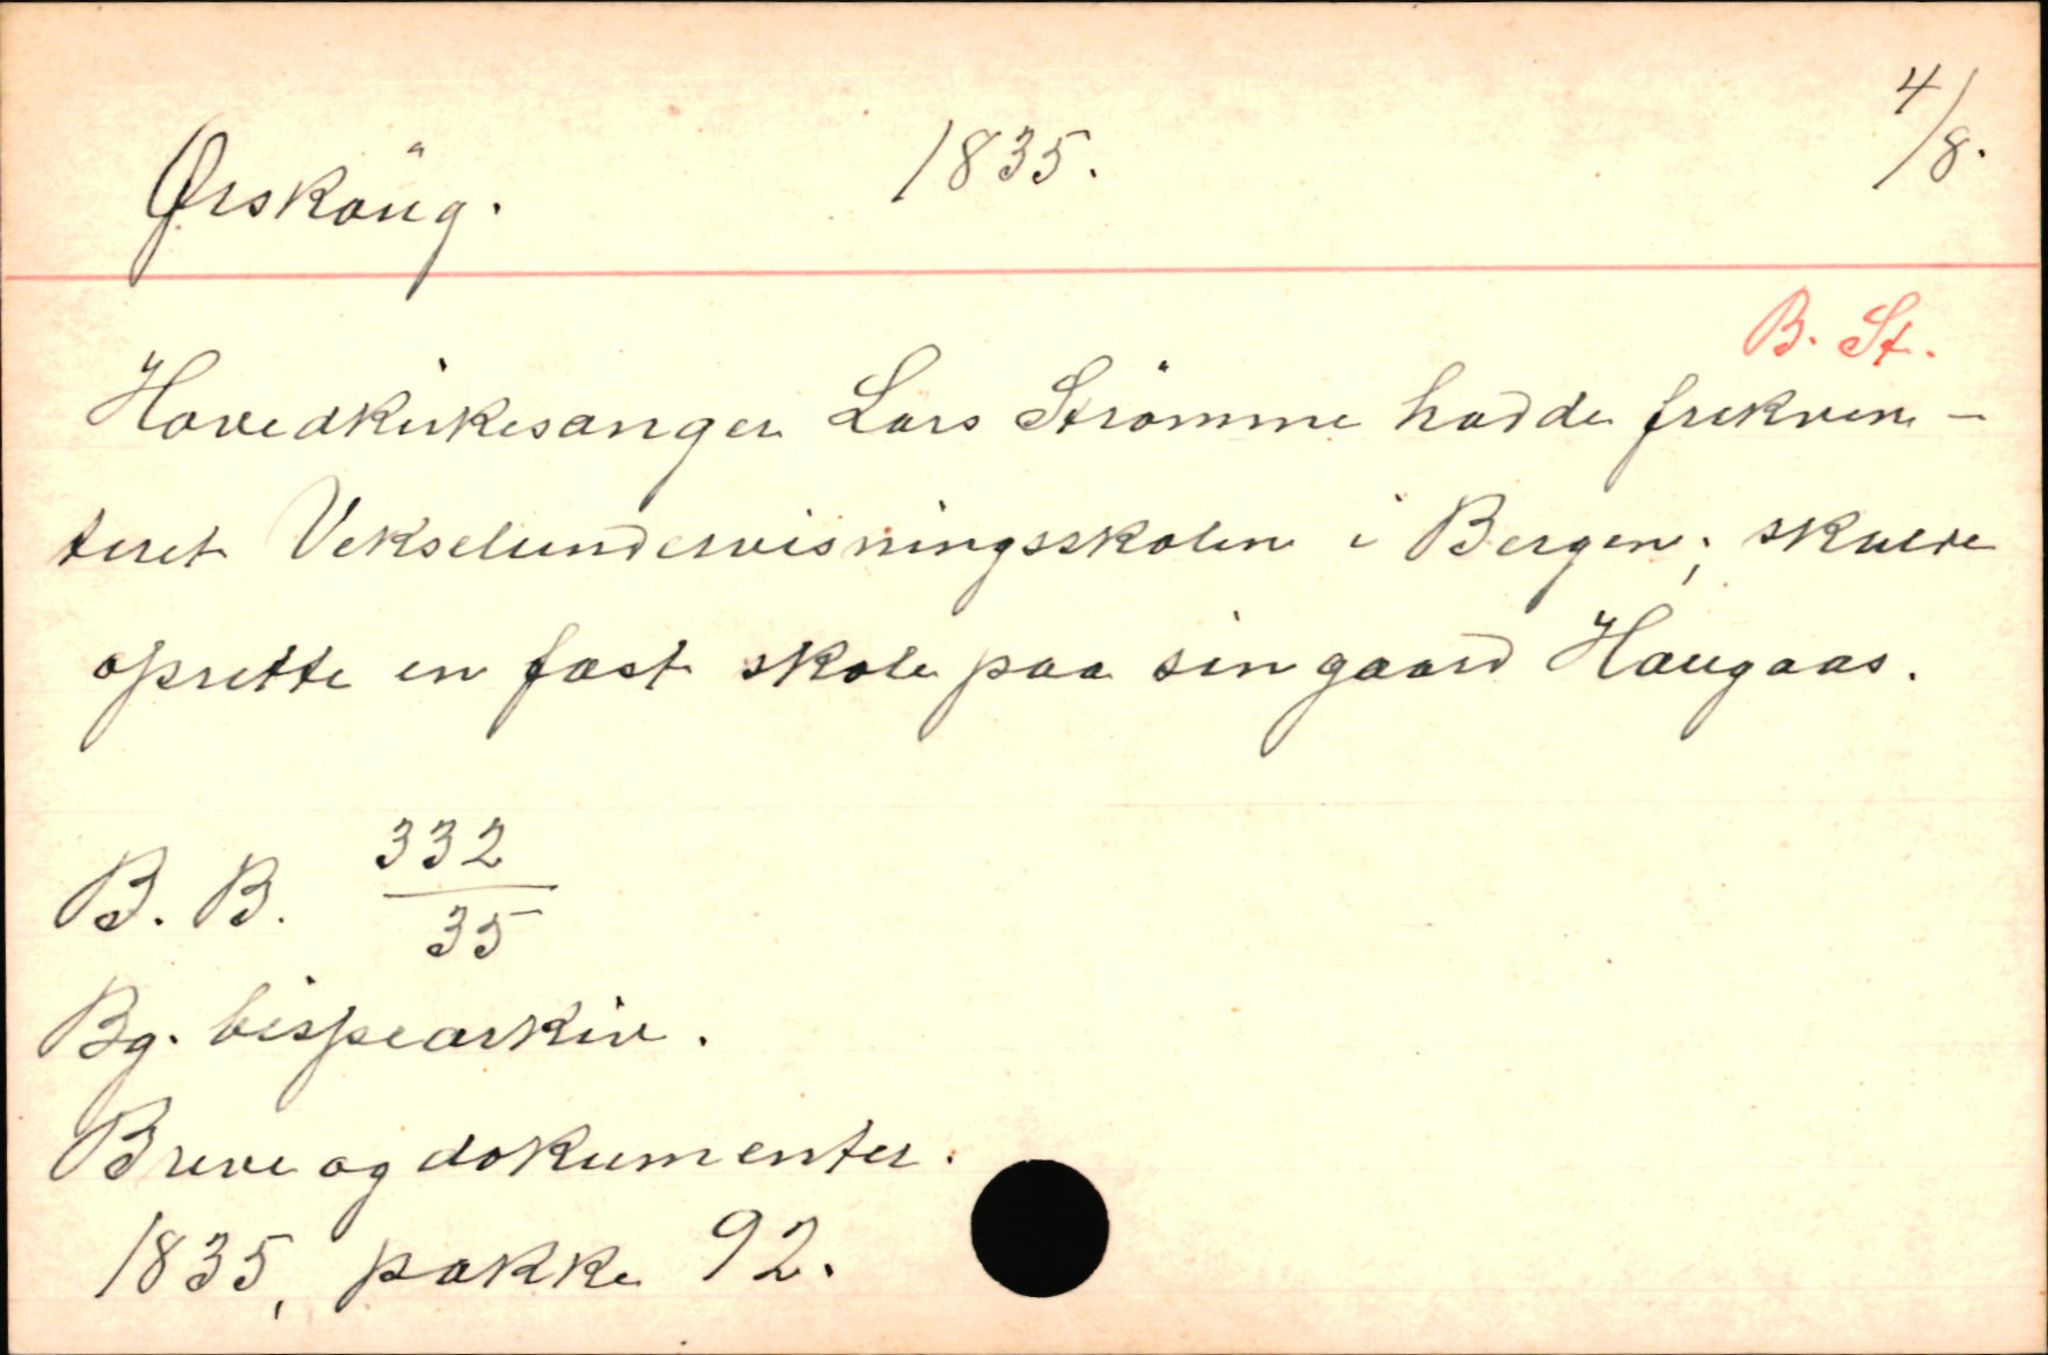 Ørskaug. 1835. 4/8.
B. St.
Hovedkirkesanger Lars Strömme hadde frekven-
teret Vekselundervisningsskolen i Bergen; skulde
oprette en fast skole paa sin gaard Haugaas.
B. B. 332/35
Bg. bispearkiv.
Breve og dokumenter.
1835, pakke 92.